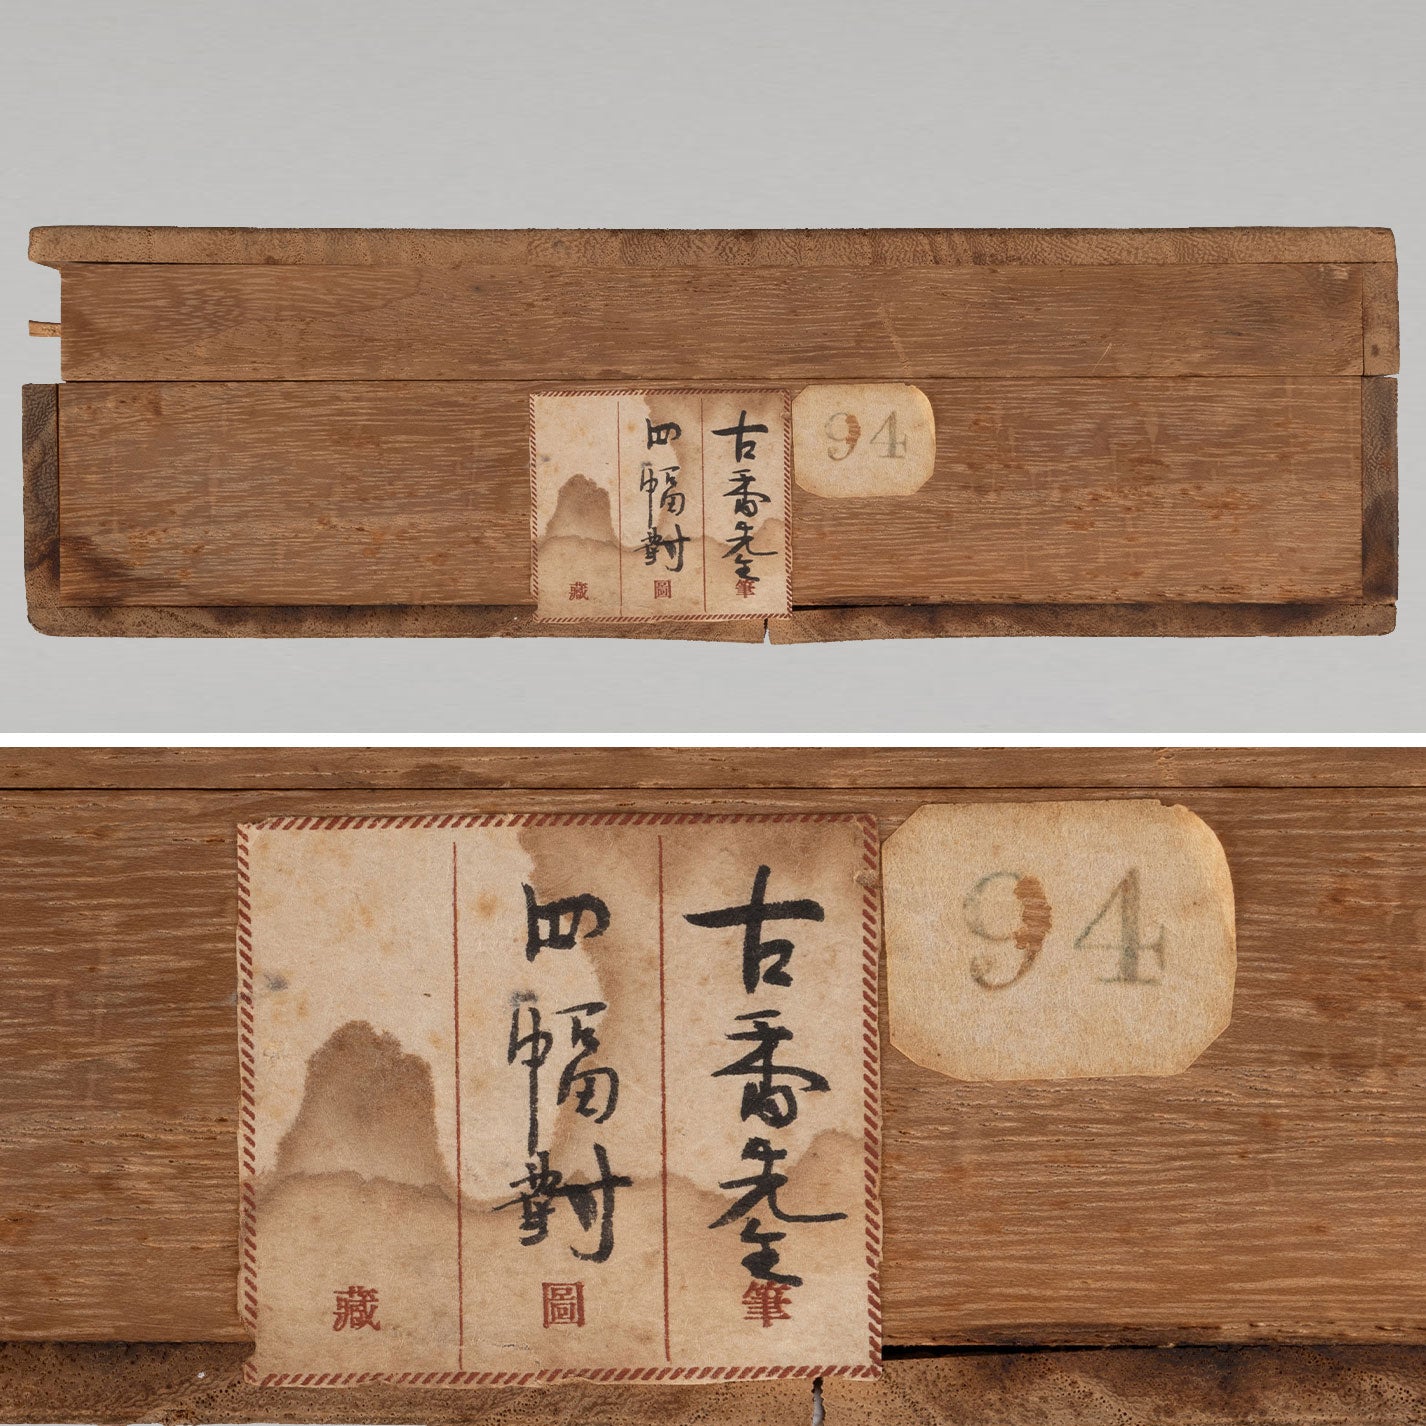 古香先生筆
四幅對圖
藏
94
古香先生筆
四幅對圖
藏
94